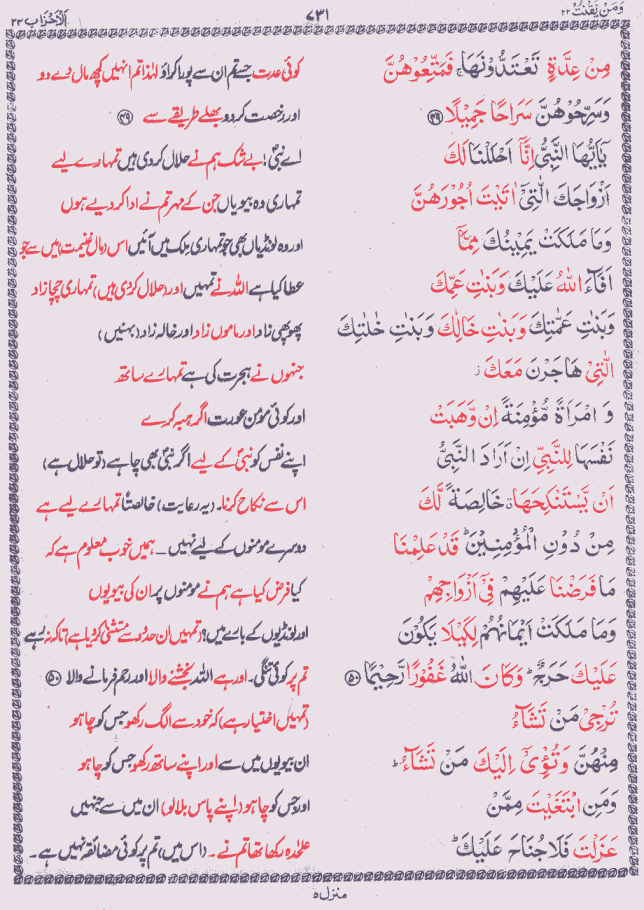 وَمَنْ يَّقْنُتْ ٢٢ ٧٣١ اَلْاَحْزَاب ٣٣
مِنْ عِدَّةٍ تَعْتَدُّوْنَهَا ۚ فَمَتِّعُوْهُنَّ کوئی عدت جسے تم ان سے پورا کراؤ لہٰذا تم انہیں کچھ مال دے دو
وَسَرِّحُوْهُنَّ سَرَاحًا جَمِيْلًا ﴿۴۹﴾ اور رخصت کر دو بھلے طریقے سے ﴿۴۹﴾
يٰٓاَيُّهَا النَّبِيُّ اِنَّآ اَحْلَلْنَا لَكَ اے نبیؐ! بے شک ہم نے حلال کر دی ہیں تمہارے لیے
اَزْوَاجَكَ الّٰتِيْٓ اٰتَيْتَ اُجُوْرَهُنَّ تمہاری وہ بیویاں جن کے مہر تم نے ادا کر دیے ہوں
وَمَا مَلَكَتْ يَمِيْنُكَ مِمَّآ اور وہ لونڈیاں بھی جو تمہاری ملک میں آئیں اس (مال غنیمت) میں سے جو
اَفَآءَ اللّٰهُ عَلَيْكَ وَبَنٰتِ عَمِّكَ عطا کیا ہے اللہ نے تمہیں اور (حلال کر دی ہیں) تمہاری چچا زاد
وَبَنٰتِ عَمّٰتِكَ وَبَنٰتِ خَالِكَ وَبَنٰتِ خٰلٰتِكَ پھوپھی زاد اور ماموں زاد اور خالہ زاد (بہنیں)
الّٰتِيْ هَاجَرْنَ مَعَكَ ز جنہوں نے ہجرت کی ہے تمہارے ساتھ
وَ امْرَاَةً مُّؤْمِنَةً اِنْ وَّهَبَتْ اور کوئی مومن عورت اگر ہبہ کرے
نَفْسَهَا لِلنَّبِيِّ اِنْ اَرَادَ النَّبِيُّ اپنے نفس کو نبیؐ کے لیے اگر نبیؐ بھی چاہے (تو حلال ہے)
اَنْ يَّسْتَنْكِحَهَا ۗ خَالِصَةً لَّكَ اس سے نکاح کرنا۔ (یہ رعایت) خالصتاً تمہارے لیے ہے
مِنْ دُوْنِ الْمُؤْمِنِيْنَ ؕ قَدْ عَلِمْنَا دوسرے مومنوں کے لیے نہیں ۔ ہمیں خوب معلوم ہے کہ
مَا فَرَضْنَا عَلَيْهِمْ فِيْٓ اَزْوَاجِهِمْ کیا فرض کیا ہے ہم نے مومنوں پر ان کی بیویوں
وَمَا مَلَكَتْ اَيْمَانُهُمْ لِكَيْلَا يَكُوْنَ اور لونڈیوں کے بارے میں؟ (تمہیں ان حدود سے مستثنیٰ کر دیا ہے) تاکہ نہ رہے
عَلَيْكَ حَرَجٌ ؕ وَكَانَ اللّٰهُ غَفُوْرًا رَّحِيْمًا ﴿۵۰﴾ تم پر کوئی تنگی۔ اور ہے اللہ بخشنے والا اور رحم فرمانے والا ﴿۵۰﴾
تُرْجِيْ مَنْ تَشَآءُ (تمہیں اختیار ہے) کہ خود سے الگ رکھو جس کو چاہو
مِنْهُنَّ وَتُـْٔوِيْٓ اِلَيْكَ مَنْ تَشَآءُ ؕ ان بیویوں میں سے اور اپنے ساتھ رکھو جس کو چاہو
وَمَنِ ابْتَغَيْتَ مِمَّنْ اور جس کو چاہو (اپنے پاس بلا لو) ان میں سے جنہیں
عَزَلْتَ فَلَا جُنَاحَ عَلَيْكَ ؕ علٰحدہ رکھا تھا تم نے ۔ (اس میں) تم پر کوئی مضائقہ نہیں ہے ۔
منزل ٥